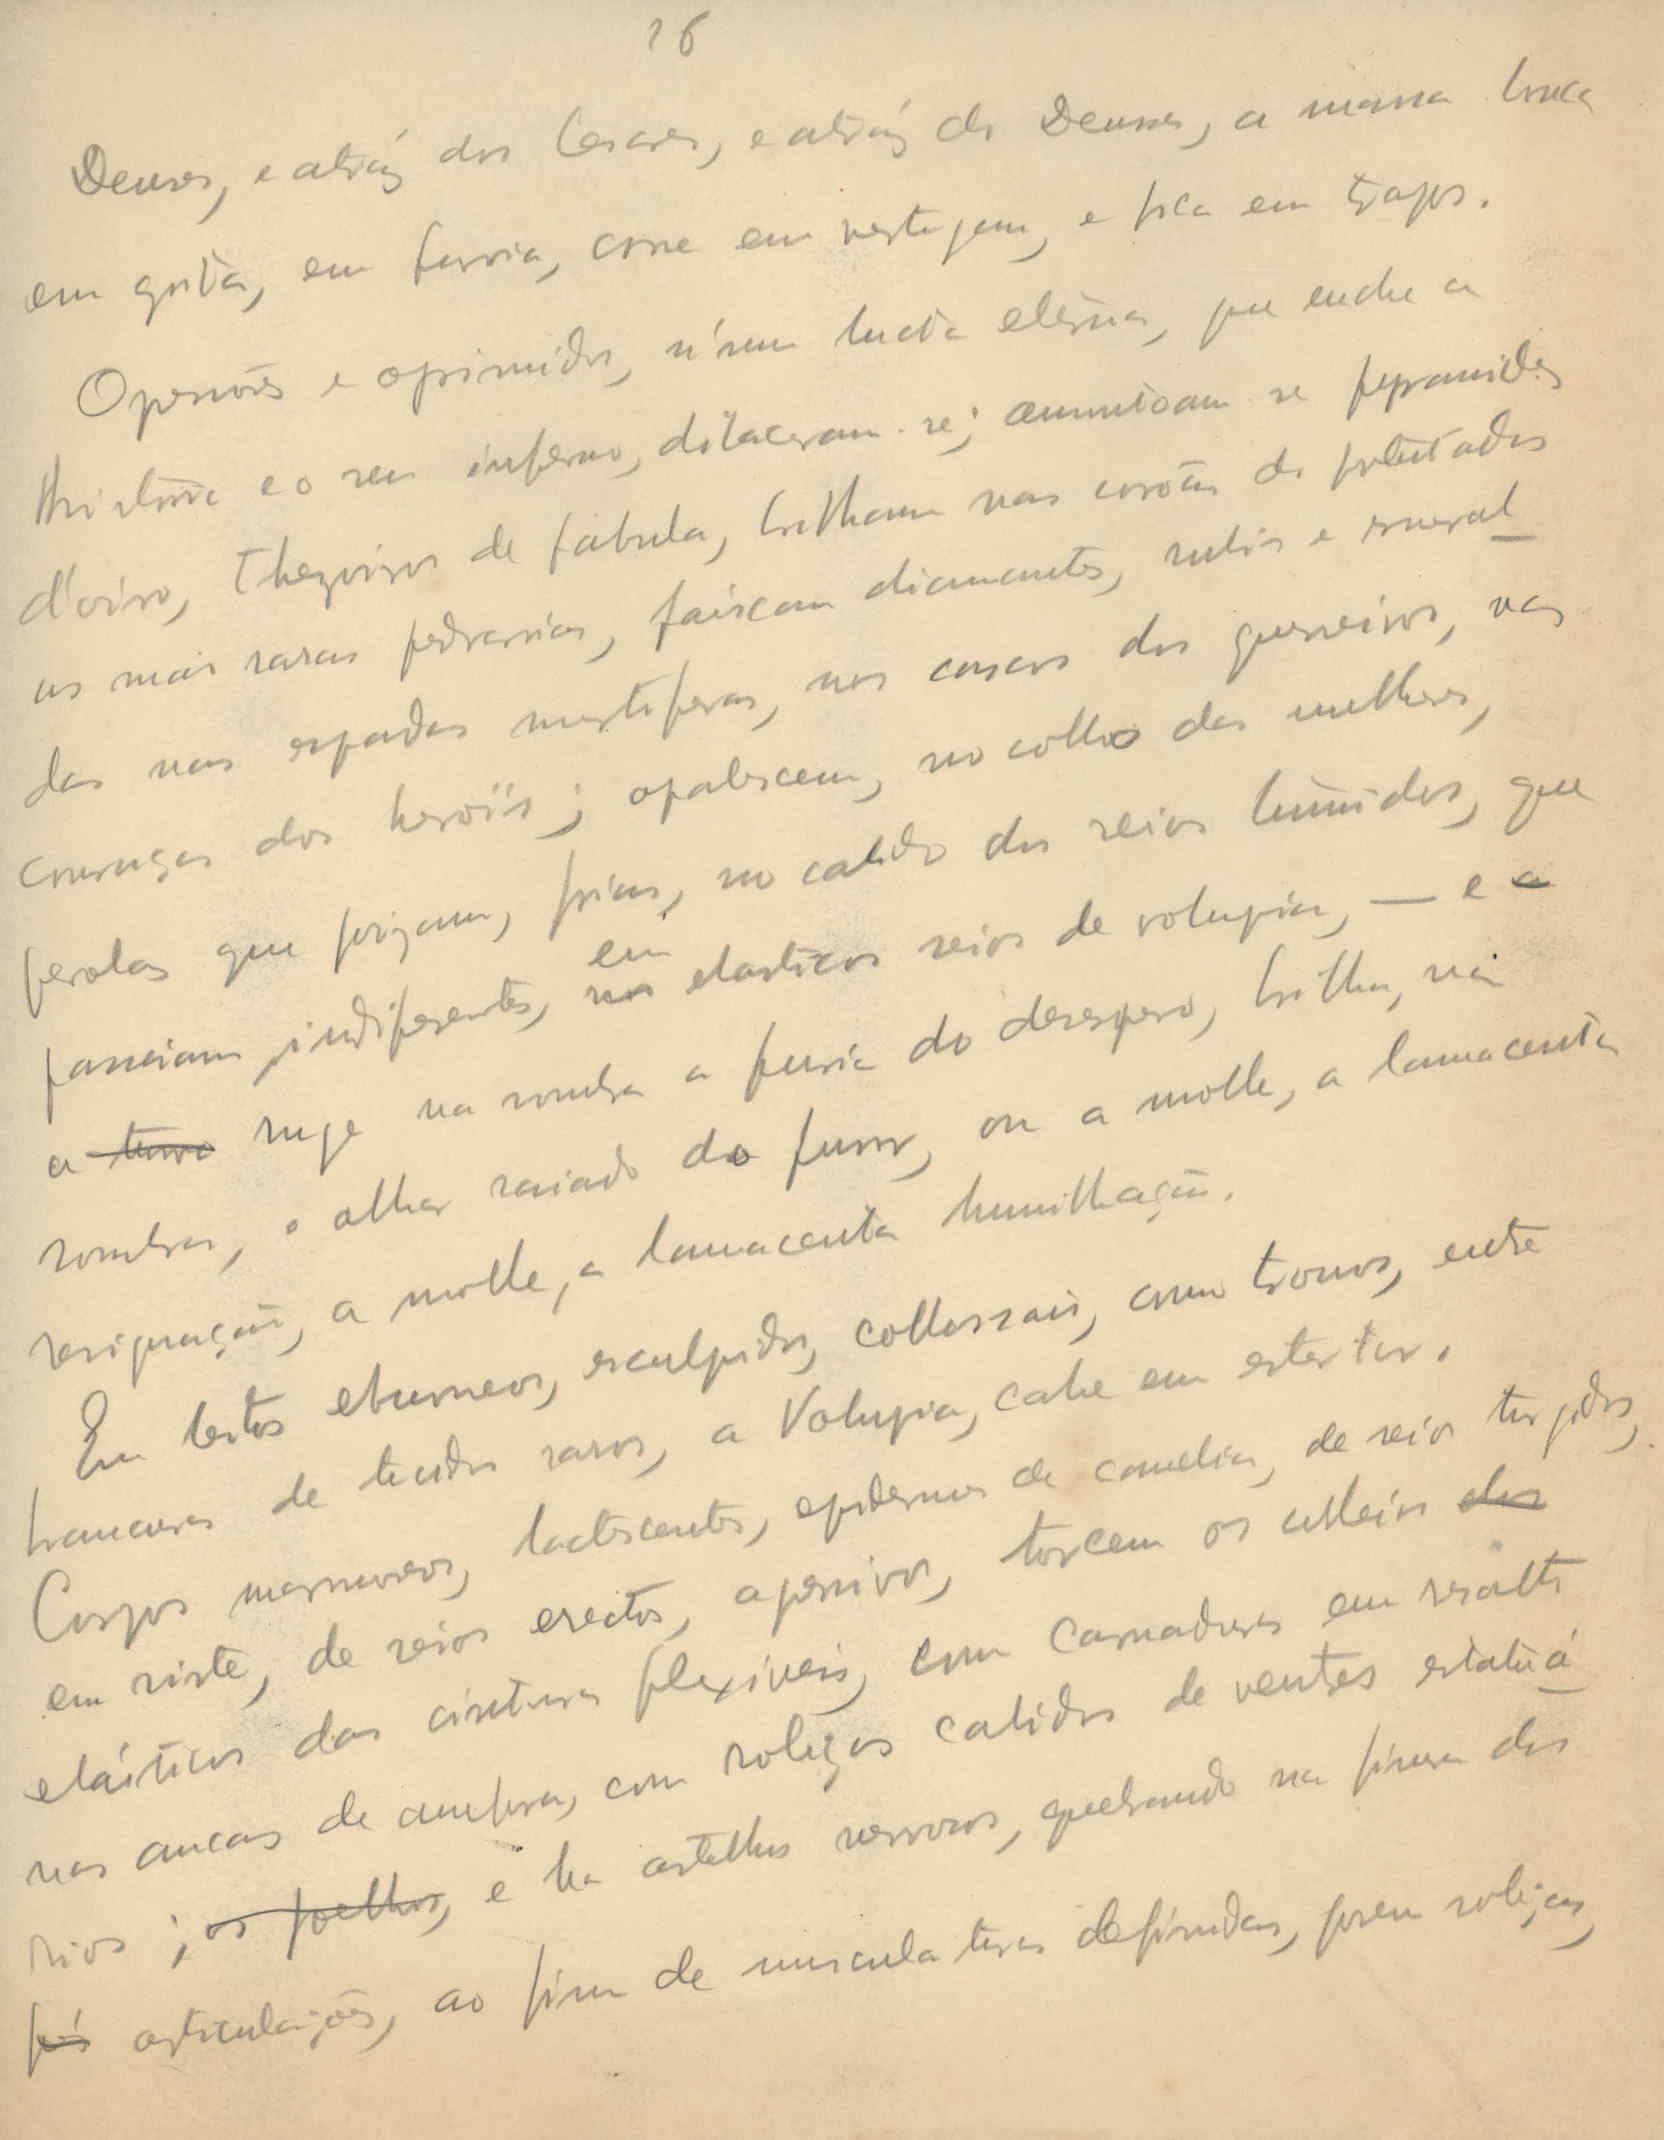 16
Deuses, e atráz dos Cesares, e atráz de Deuses, a massa louca
em grita, em furia, corre em vertigem, e fica em trapos.
Opressôres e oprimidos, n'uma lucta eterna, que enche a
Historia e o seu inferno, dilaceram-se; amontoam-se pyramides
d'oiro, thezoiros de fabula, brilham nas corôas de potentados
as mais raras pedrarias, faiscam diamantes, rubis e esmeral
das nas espadas mortiferas, nos cascos dos guerreiros, nas
couraças dos heroïs; opalescem, no collo das mulheres,
perolas que poizam, frias, no calido dos seios tumidos, que
passeiam, indiferentes, nos em elasticos seios de volupia, — e a
a turva ruge na sombra a furia do desespero, brilha, na
sombra, o olhar raiado do furor, ou a molle, a lamacenta
resignação, a molle, a lamacenta humilhação.
Em leitos eburneos, esculpidos, collossais, como tronos, entre
brancuras de tecidos raros, a Volupia, cahe em estertor.
Corpos marmoreos, lactescentes, epidermes de camelia, de seios turgidos,
em riste, de seios erectos, apressivos, torcem os colleios dos
elásticos das cinturas flexiveis, com carnaduras em resalte
nas ancas de amfora, com roliços calidos de ventres estatuá
rios; os joelhos, e ha artelhos nervosos, quebrando na finura das
pés articulações, ao fim de musculaturas definidas, porem roliças,